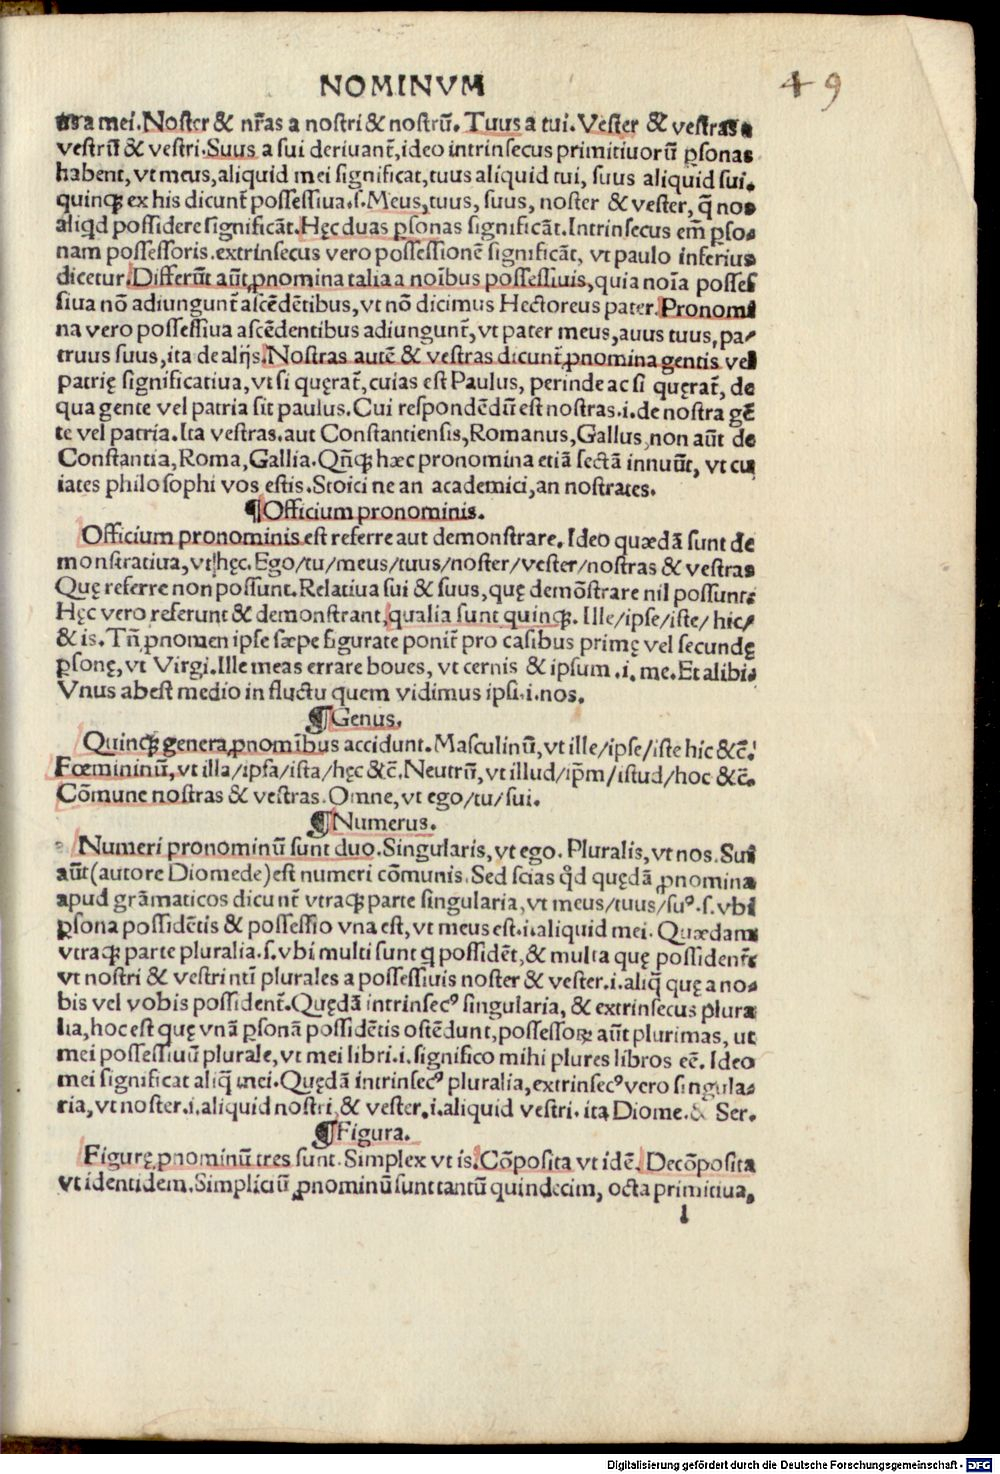 NOMINVM
49
us a mei. Noster & nr̃as a nostri & nostrū. Tuus a tui. Vester & vestras a
vestrū & vestri. Suus a sui deriuant̃, ideo intrinsecus primitiuorū ꝑsonas
habent, vt meus, aliquid mei significat, tuus aliquid tui, suus aliquid sui.
quinqꝫ ex his dicunt̃ possessiua .s. Meus, tuus, suus, noster & vester, q̃ nos
aliqd possidere significãt. Hęc duas ꝑsonas significãt. Intrinsecus em̃ ꝑso-
nam possessoris. extrinsecus vero possessionē significãt, vt paulo inferius
dicetur. Differũt aũt ꝓnomina talia a noĩbus possessiuis, quia noĩa posses
siua nō adiungunt̃ ascēdētibus, vt nō dicimus Hectoreus pater. Pronomi
na vero possessiua ascēdentibus adiungunt̃, vt pater meus, auus tuus, pa-
truus suus, ita de alijs. Nostras autē & vestras dicunt̃ ꝓnomina gentis vel
patrię significatiua, vt si quęrat̃, cuias est Paulus, perinde ac si quęrat̃, de
qua gente vel patria sit paulus. Cui respondēdū est nostras .i. de nostra gē
te vel patria. Ita vestras. aut Constantiensis, Romanus, Gallus, non aũt de
Constantia, Roma, Gallia. Qñqꝫ hæc pronomina etiã sectã innuũt, vt cu
iates philosophi vos estis. Stoici ne an academici, an nostrates.
¶ Officium pronominis.
Officium pronominis est referre aut demonstrare. Ideo quædã sunt de
monstratiua, vt hęc. Ego/tu/meus/tuus/noster/vester/nostras & vestras
Quę referre non possunt. Relatiua sui & suus, quę demōstrare nil possunt.
Hęc vero referunt & demonstrant, qualia sunt quinqꝫ. Ille/ipse/iste/hic/
& is. Tñ ꝓnomen ipse sæpe figurate ponit̃ pro casibus primę vel secundę
ꝑsonę, vt Virgi. Ille meas errare boues, vt cernis & ipsum .i. me. Et alibi.
Vnus abest medio in fluctu quem vidimus ipsi .i. nos.
¶ Genus.
Quinqꝫ genera ꝓnomĩbus accidunt. Masculinū, vt ille/ipse/iste hic &c̃.
Fœmininū, vt illa/ipsa/ista/hęc &c̃. Neutrū, vt illud/ip̃m/istud/hoc &c̃.
Cōmune nostras & vestras. Omne, vt ego/tu/sui.
¶ Numerus.
Numeri pronominū sunt duo. Singularis, vt ego. Pluralis, vt nos. Sui
aũt (autore Diomede) est numeri cōmunis. Sed scias qd̃ quędã ꝓnomina
apud grãmaticos dicunt̃ vtraqꝫ parte singularia, vt meus/tuus/suꝰ .s. vbi
ꝑsona possidētis & possessio vna est, vt meus est .i. aliquid mei. Quædam
vtraqꝫ parte pluralia .s. vbi multi sunt q possidēt, & multa quę possident̃
vt nostri & vestri nt̃i plurales a possessiuis noster & vester .i. aliq̃ quę a no-
bis vel vobis possident̃. Quędã intrinsecꝰ singularia, & extrinsecus plura
lia, hoc est quę vnã ꝑsonã possidētis ostēdunt, possessoꝝ aũt plurimas, ut
mei possessiuū plurale, vt mei libri .i. significo mihi plures libros eẽ. Ideo
mei significat aliq̃ mei. Quędã intrinsecꝰ pluralia, extrinsecꝰ vero singula-
ria, vt noster .i. aliquid nostri, & vester .i. aliquid vestri. ita Diome. & Ser.
¶ Figura.
Figurę ꝓnominū tres sunt. Simplex vt is. Cōposita vt idē. Decōposita
vt identidem. Simpliciū ꝓnominū sunt tantū quindecim, octa primitiua,
l
Digitalisierung gefördert durch die Deutsche Forschungsgemeinschaft - DFG